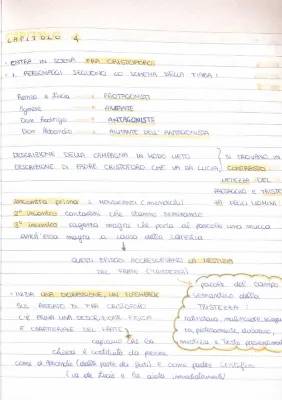 CAPITOLO 4
• ENTRA IN SCENA FRA CRISTOFORO
• I PERSONAGGI SEGUONO LO SCHEMA DELLA FIABA:
Renzo e Lucia = PROTAGONISTI
Agnese = AIUTANTE
Don Rodrigo = ANTAGONISTA
Don Abbondio = AIUTANTE DELL'ANTAGONISTA
DESCRIZIONE DELLA CAMPAGNA IN MODO LIETO } SI TROVANO IN
DESCRIZIONE DI PADRE CRISTOFORO CHE VA DA LUCIA CONTRASTO
LETIZIA DEL
PAESAGGIO E TRISTE
DEGLI UOMINI
incontra prima i mendicanti
2° incontro contadini che stanno seminando
3° incontro ragazza magra che porta al pascolo una mucca
anch'essa magra a causa della carestia
QUESTI EPISODI ACCRESCEVANO LA MESTIZIA
DEL FRATE (TRISTEZZA)
• INIZIA UNA DIGRESSIONE, UN FLASHBACK
SUL PASSATO DI FRA CRISTOFORO
C'È PRIMA UNA DESCRIZIONE FISICA
E CARATTERIALE DEL FRATE
capiamo che la
chiesa è costituita da persone
come d'Abbondio (dalla parte dei forti) e come padre Cristoforo
(va da Lucia e la aiuta immediatamente)
parole del campo
semantico della
TRISTEZZA:
mestizia e tristo presentimento